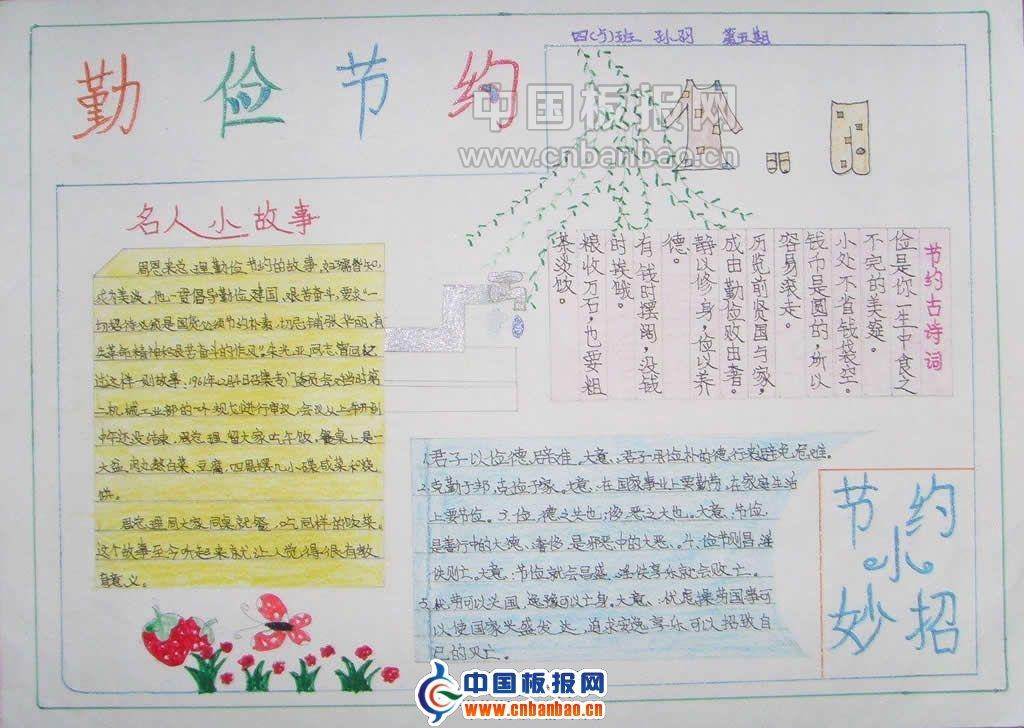 四(5)班 孙羽 第五期
勤俭节约
中国板报网
www.cnbanbao.cn
名人小故事
周恩来总理勤俭节约的故事,妇孺皆知,
成为美谈。他一贯倡导勤俭建国、艰苦奋斗,要求"一
切招待必须是国货,必须节约朴素,切忌铺张华丽,有
失革命精神和艰苦奋斗的作风"。朱光亚同志曾回忆
过这样一则故事,1961年12月4日召集专门委员会对当时第
二机械工业部的一个规划进行审议,会议从上午开到
中午还没结束,周总理留大家吃午饭,餐桌上是一
大盆肉丸熬白菜、豆腐,四周摆几小碟咸菜和烧
饼。
周总理同大家同桌就餐,吃同样的饭菜。
这个故事至今听起来就让人觉得很有教
育意义。
节约古诗词
俭是你一生中食之
不完的美筵。
小处不省钱袋空。
钱币是圆的,所以
容易滚走。
历览前贤国与家,
成由勤俭败由奢。
静以修身,俭以养
德。
有钱时摆阔,没钱
时挨饿。
粮收万石,也要粗
茶淡饭。
1.君子以俭德辟难。大意:君子用俭朴的德行来避免危难。
2.克勤于邦,克俭于家。大意:在国家事业上要勤劳,在家庭生活
上要节俭。3.俭,德之共也;侈,恶之大也。大意:节俭,
是善行中的大德、奢侈,是邪恶中的大恶。4.俭节则昌,淫
佚则亡。大意:节俭就会昌盛,淫佚享乐就会败亡。
5.忧劳可以兴国,逸豫可以亡身。大意:忧虑操劳国事可
以使国家兴盛发达,追求安逸享乐可以招致自
己的灭亡。
节约
小
妙招
中国板报网
www.cnbanbao.cn